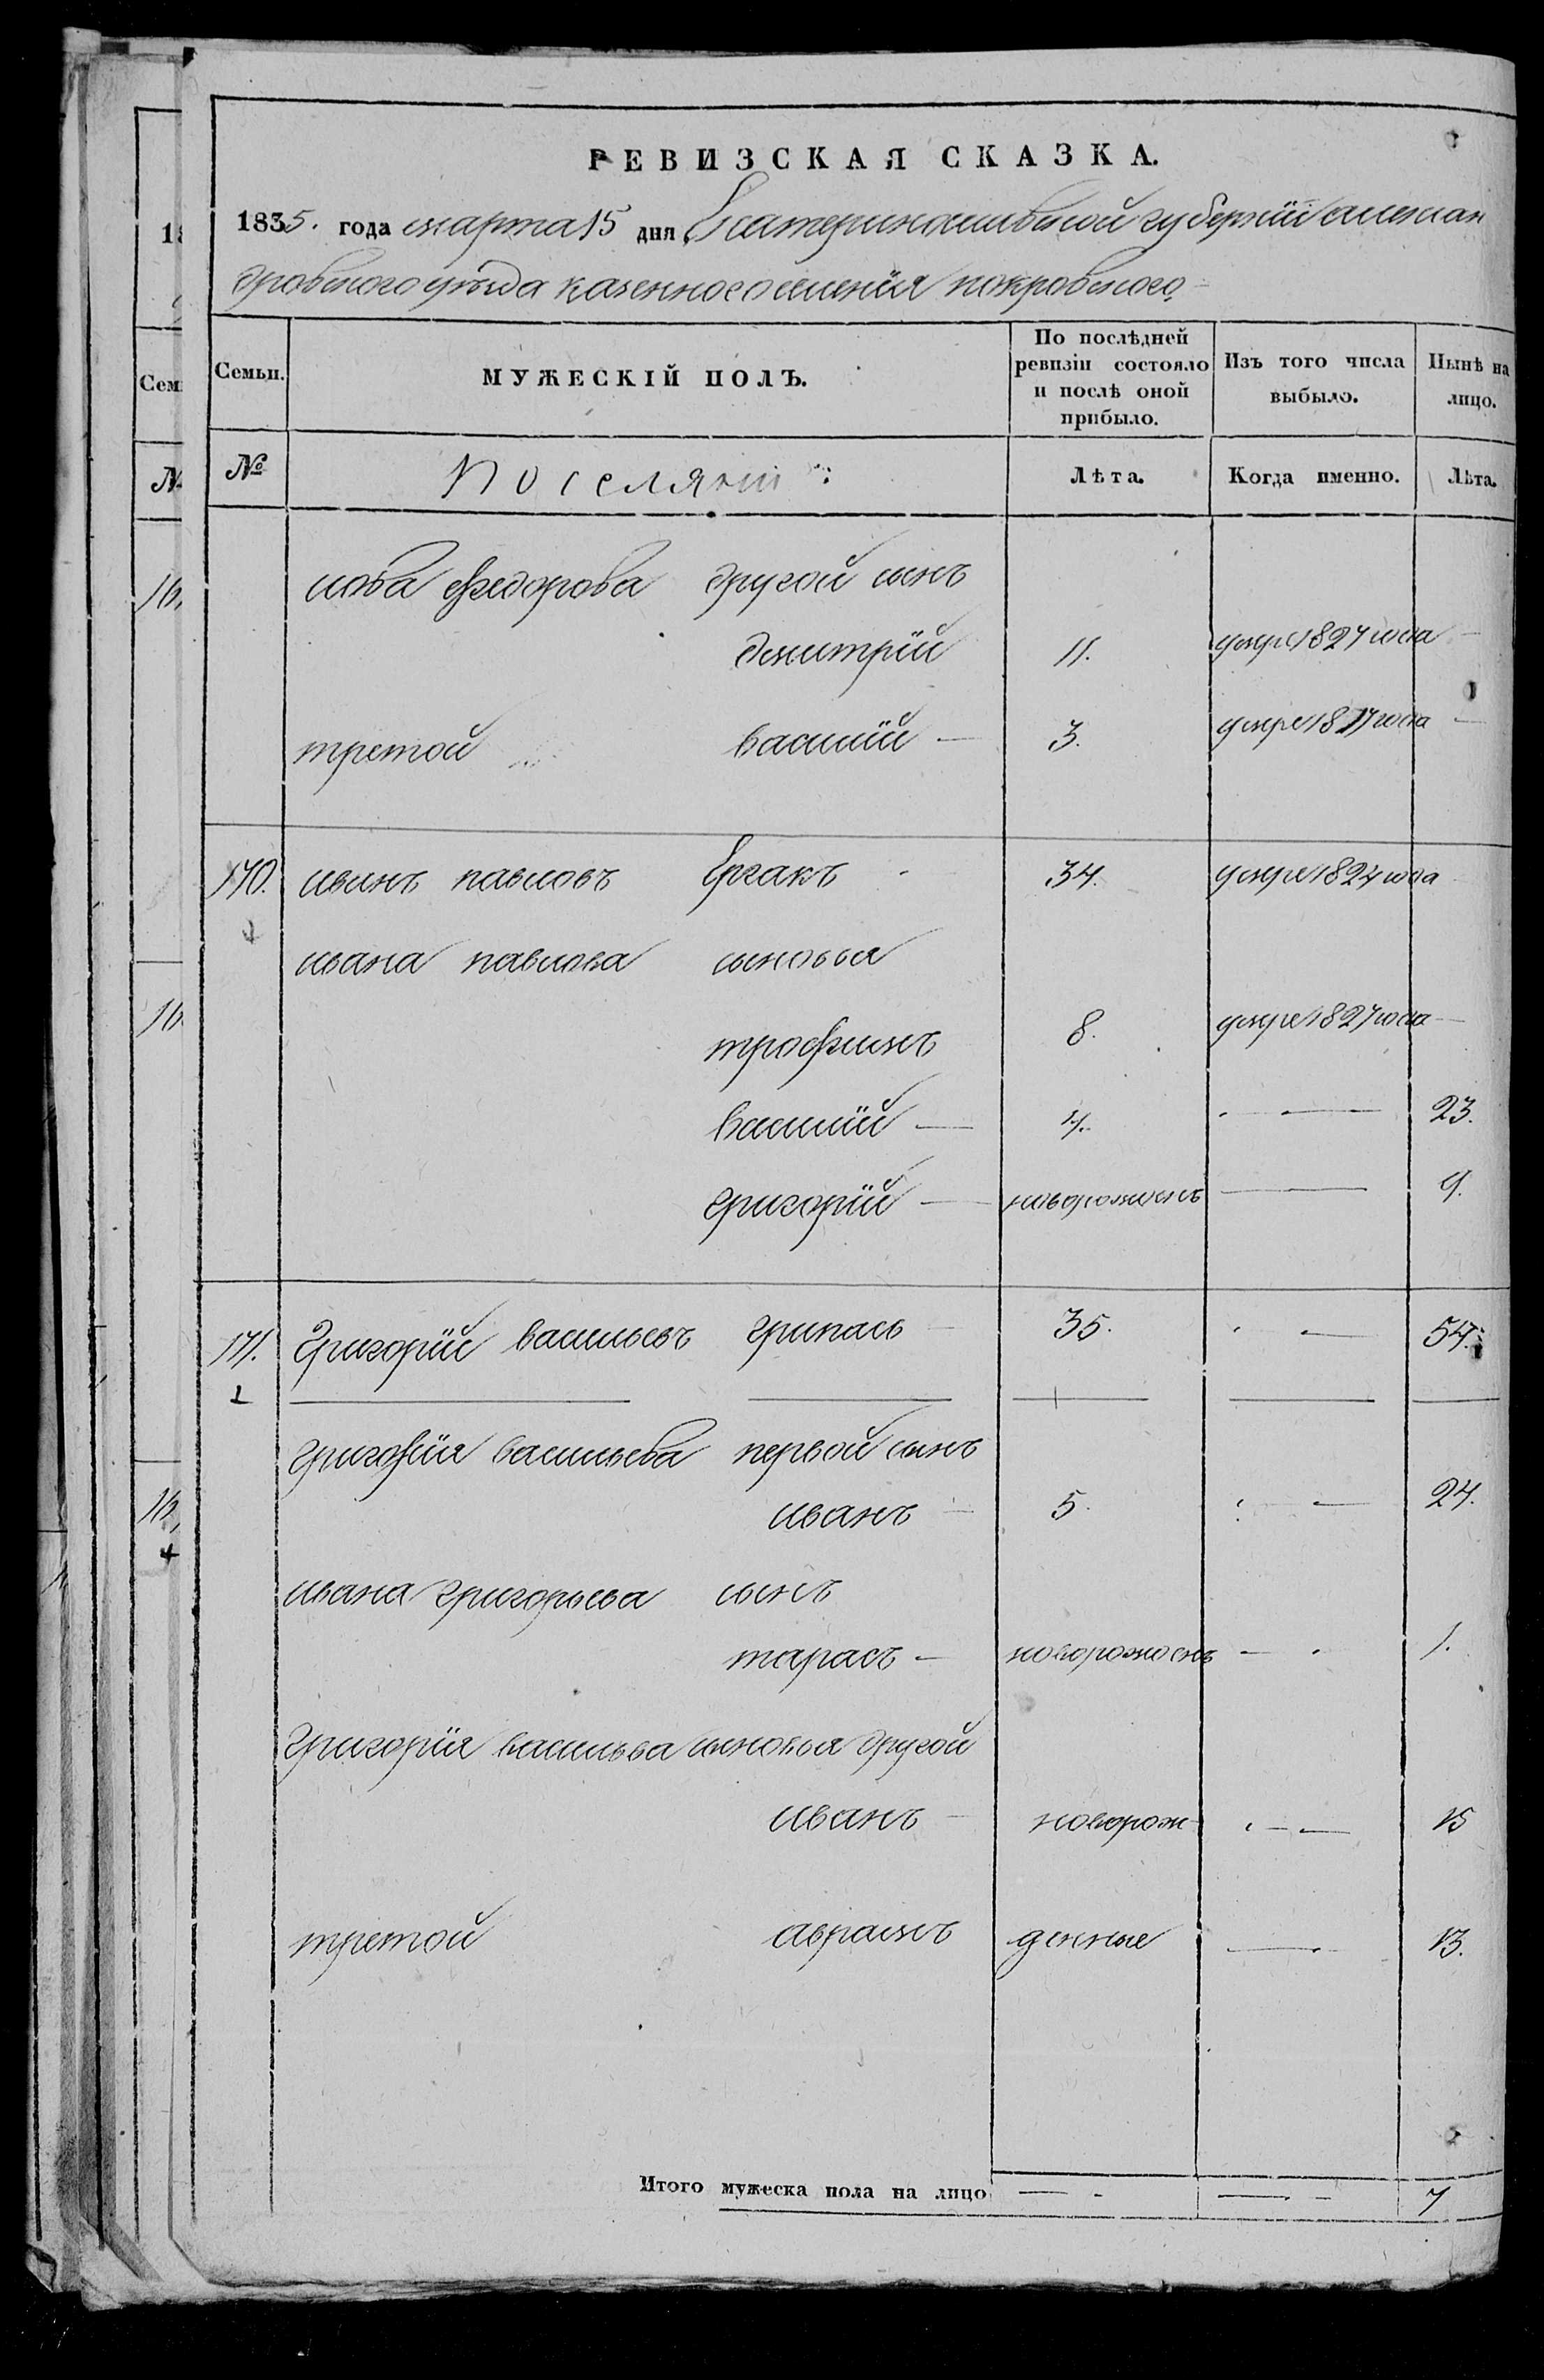 РЕВИЗСКАЯ СКАЗКА.
1835. года марта 15 дня Екатеринославской губернии алексан
дровского уезда казенного селенїя покровского
Семьи. МУЖЕСКІЙ ПОЛЪ. По послѣдней ревизіи состояло и послѣ оной прибыло. Изъ того числа выбыло. Нынѣ на лицо.
№ Поселяни Лѣта. Когда именно. Лѣта.
иова федорова другой сынъ
дмитрїй 11. умре 1827 года
третой василїй — 3. умре года
170. иванъ павловъ Ергакъ 34. умре 1824 года
ивана павлова сыновья
трофимъ 8. умре 1827 года —
василїй — 4. — 23.
григорїй — новорожденъ — 9.
171. Григорїй васильевъ грипась 35. — 54.
григорїя васильева первой сынъ
иванъ 5. — 24.
ивана григорьева сынъ
тарасъ — новорожденъ — 1.
Григорїя васильева сыновья другой
иванъ новорож — 15
третой аврамъ денные — 13.
Итого мужеска пола на лицо — — 7